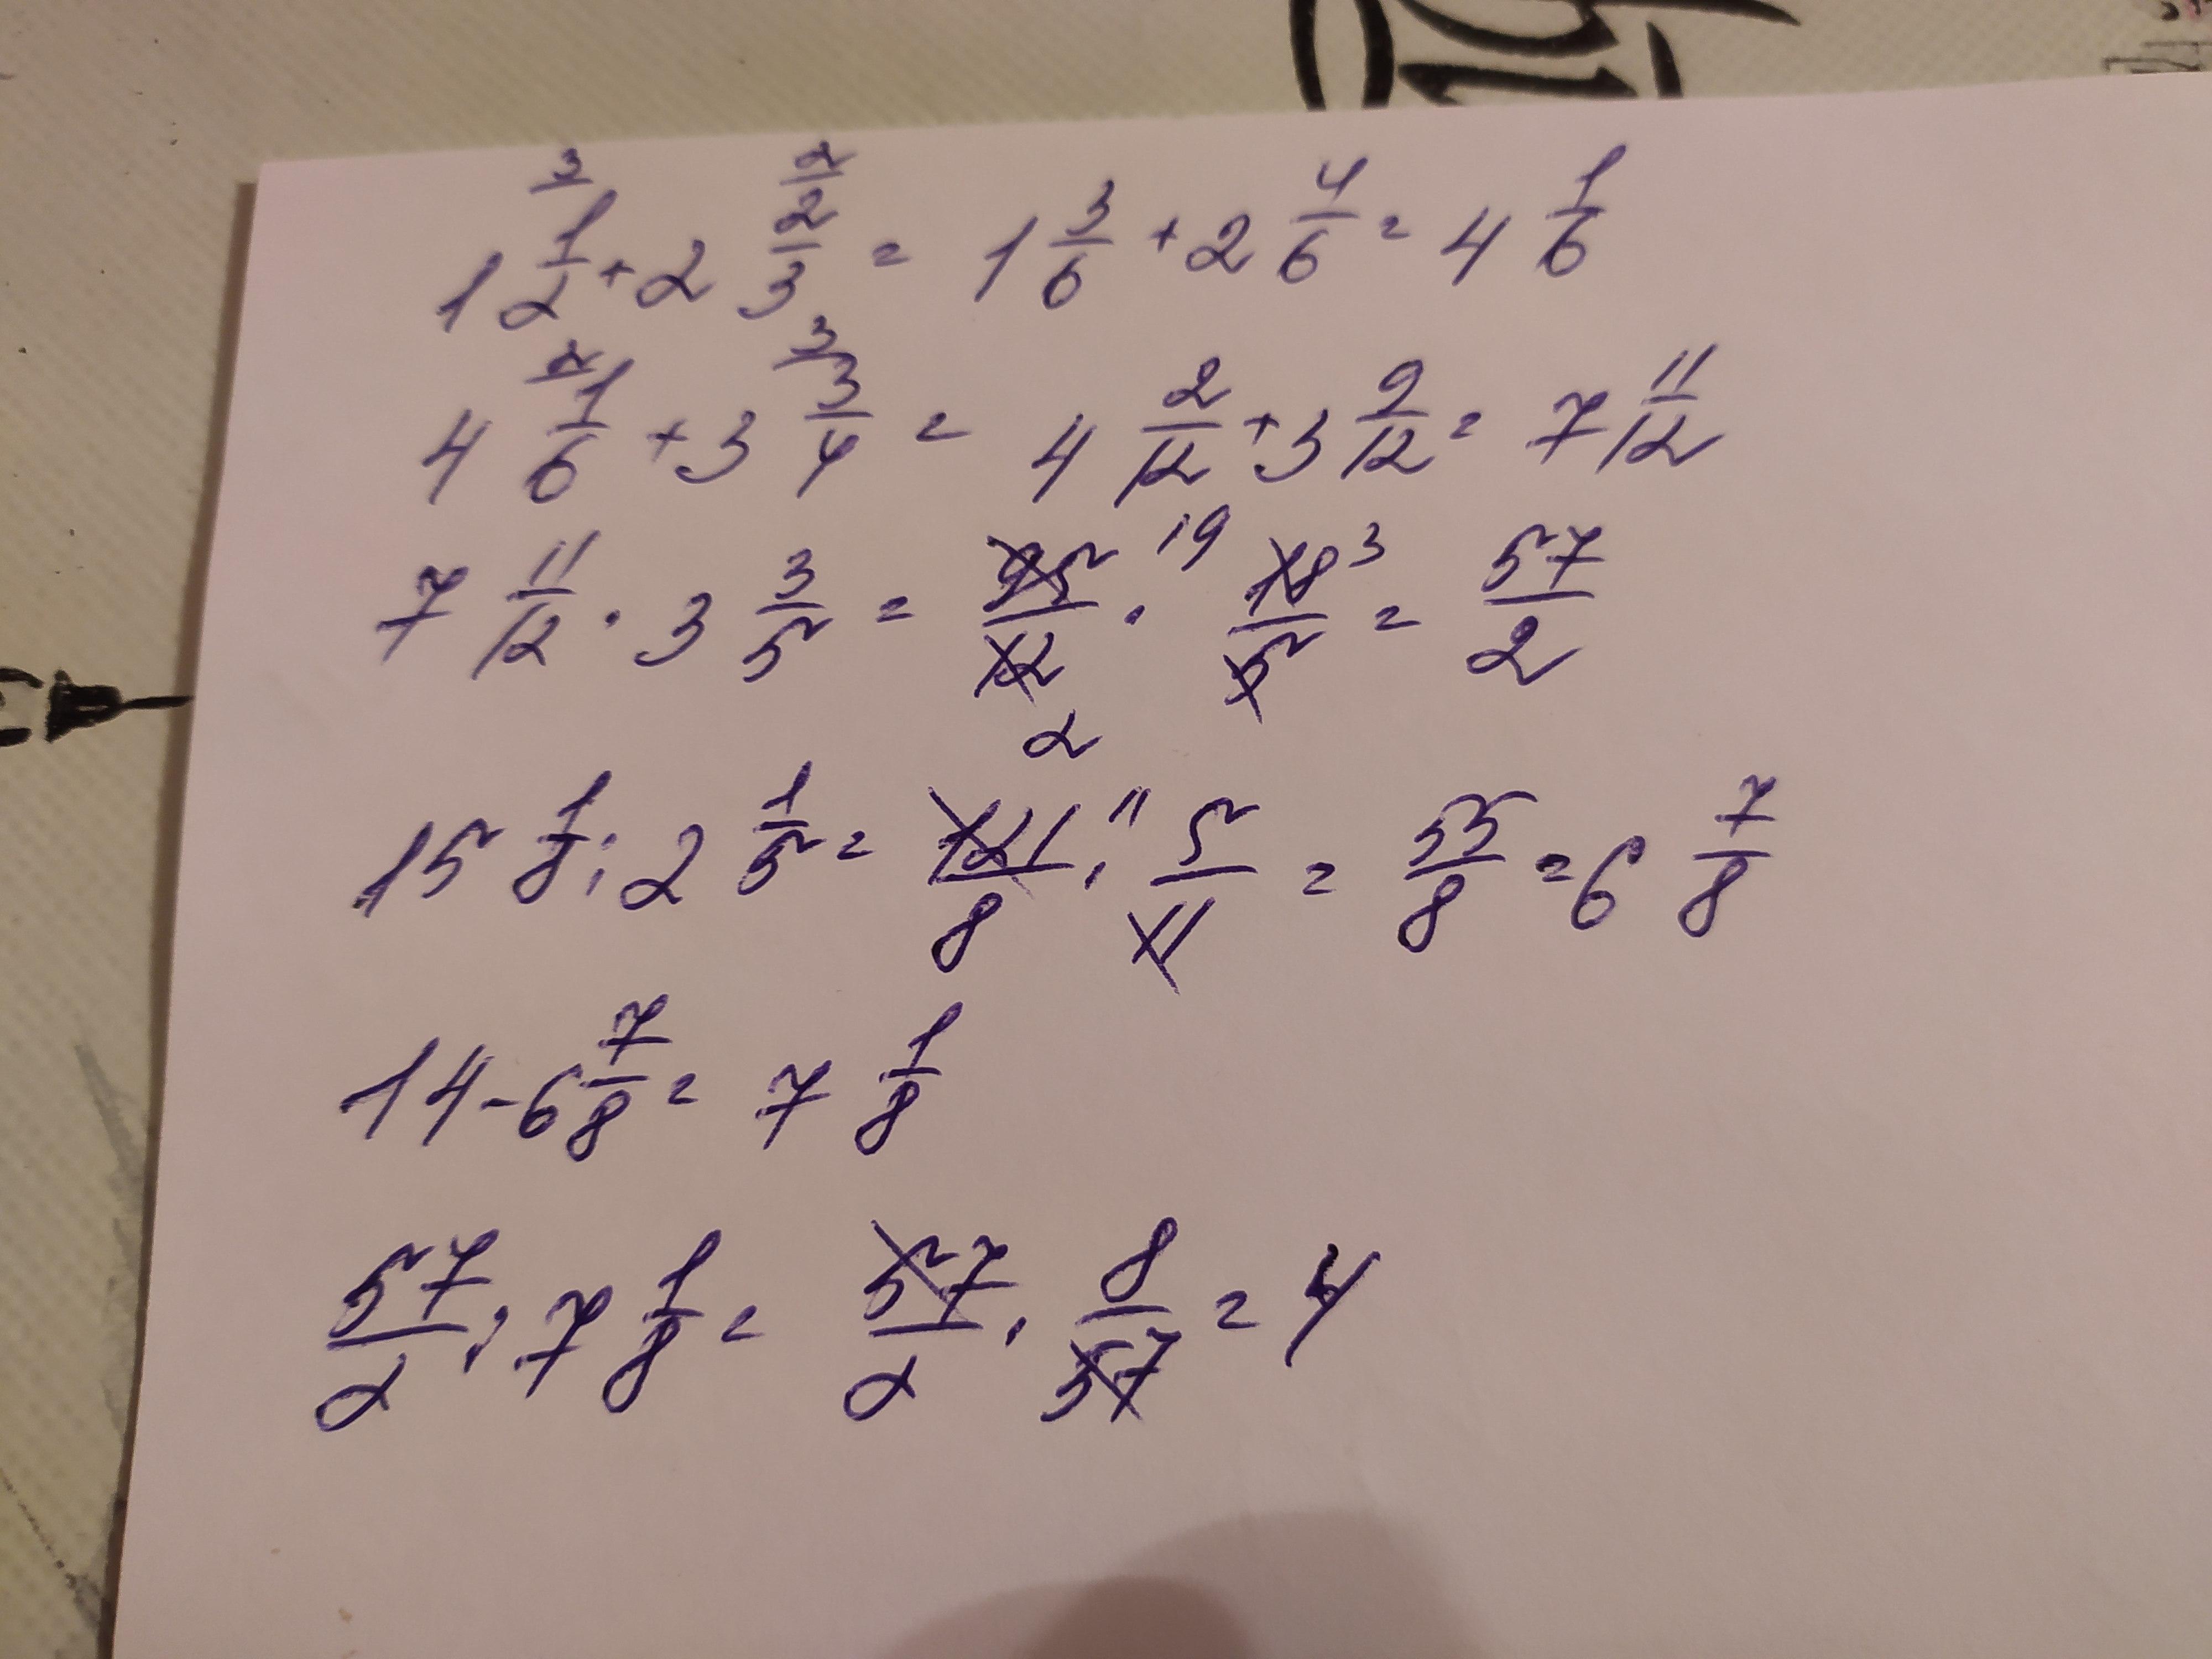 1 1/2 + 2 2/3 = 1 3/6 + 2 4/6 = 4 1/6
4 1/6 + 3 3/4 = 4 2/12 + 3 9/12 = 7 11/12
7 11/12 · 3 3/5 = 95/12 · 18/5 = 57/2
15 1/8 : 2 1/5 = 121/8 · 5/11 = 55/8 = 6 7/8
14 - 6 7/8 = 7 1/8
57/2 : 7 1/8 = 57/2 · 8/57 = 4